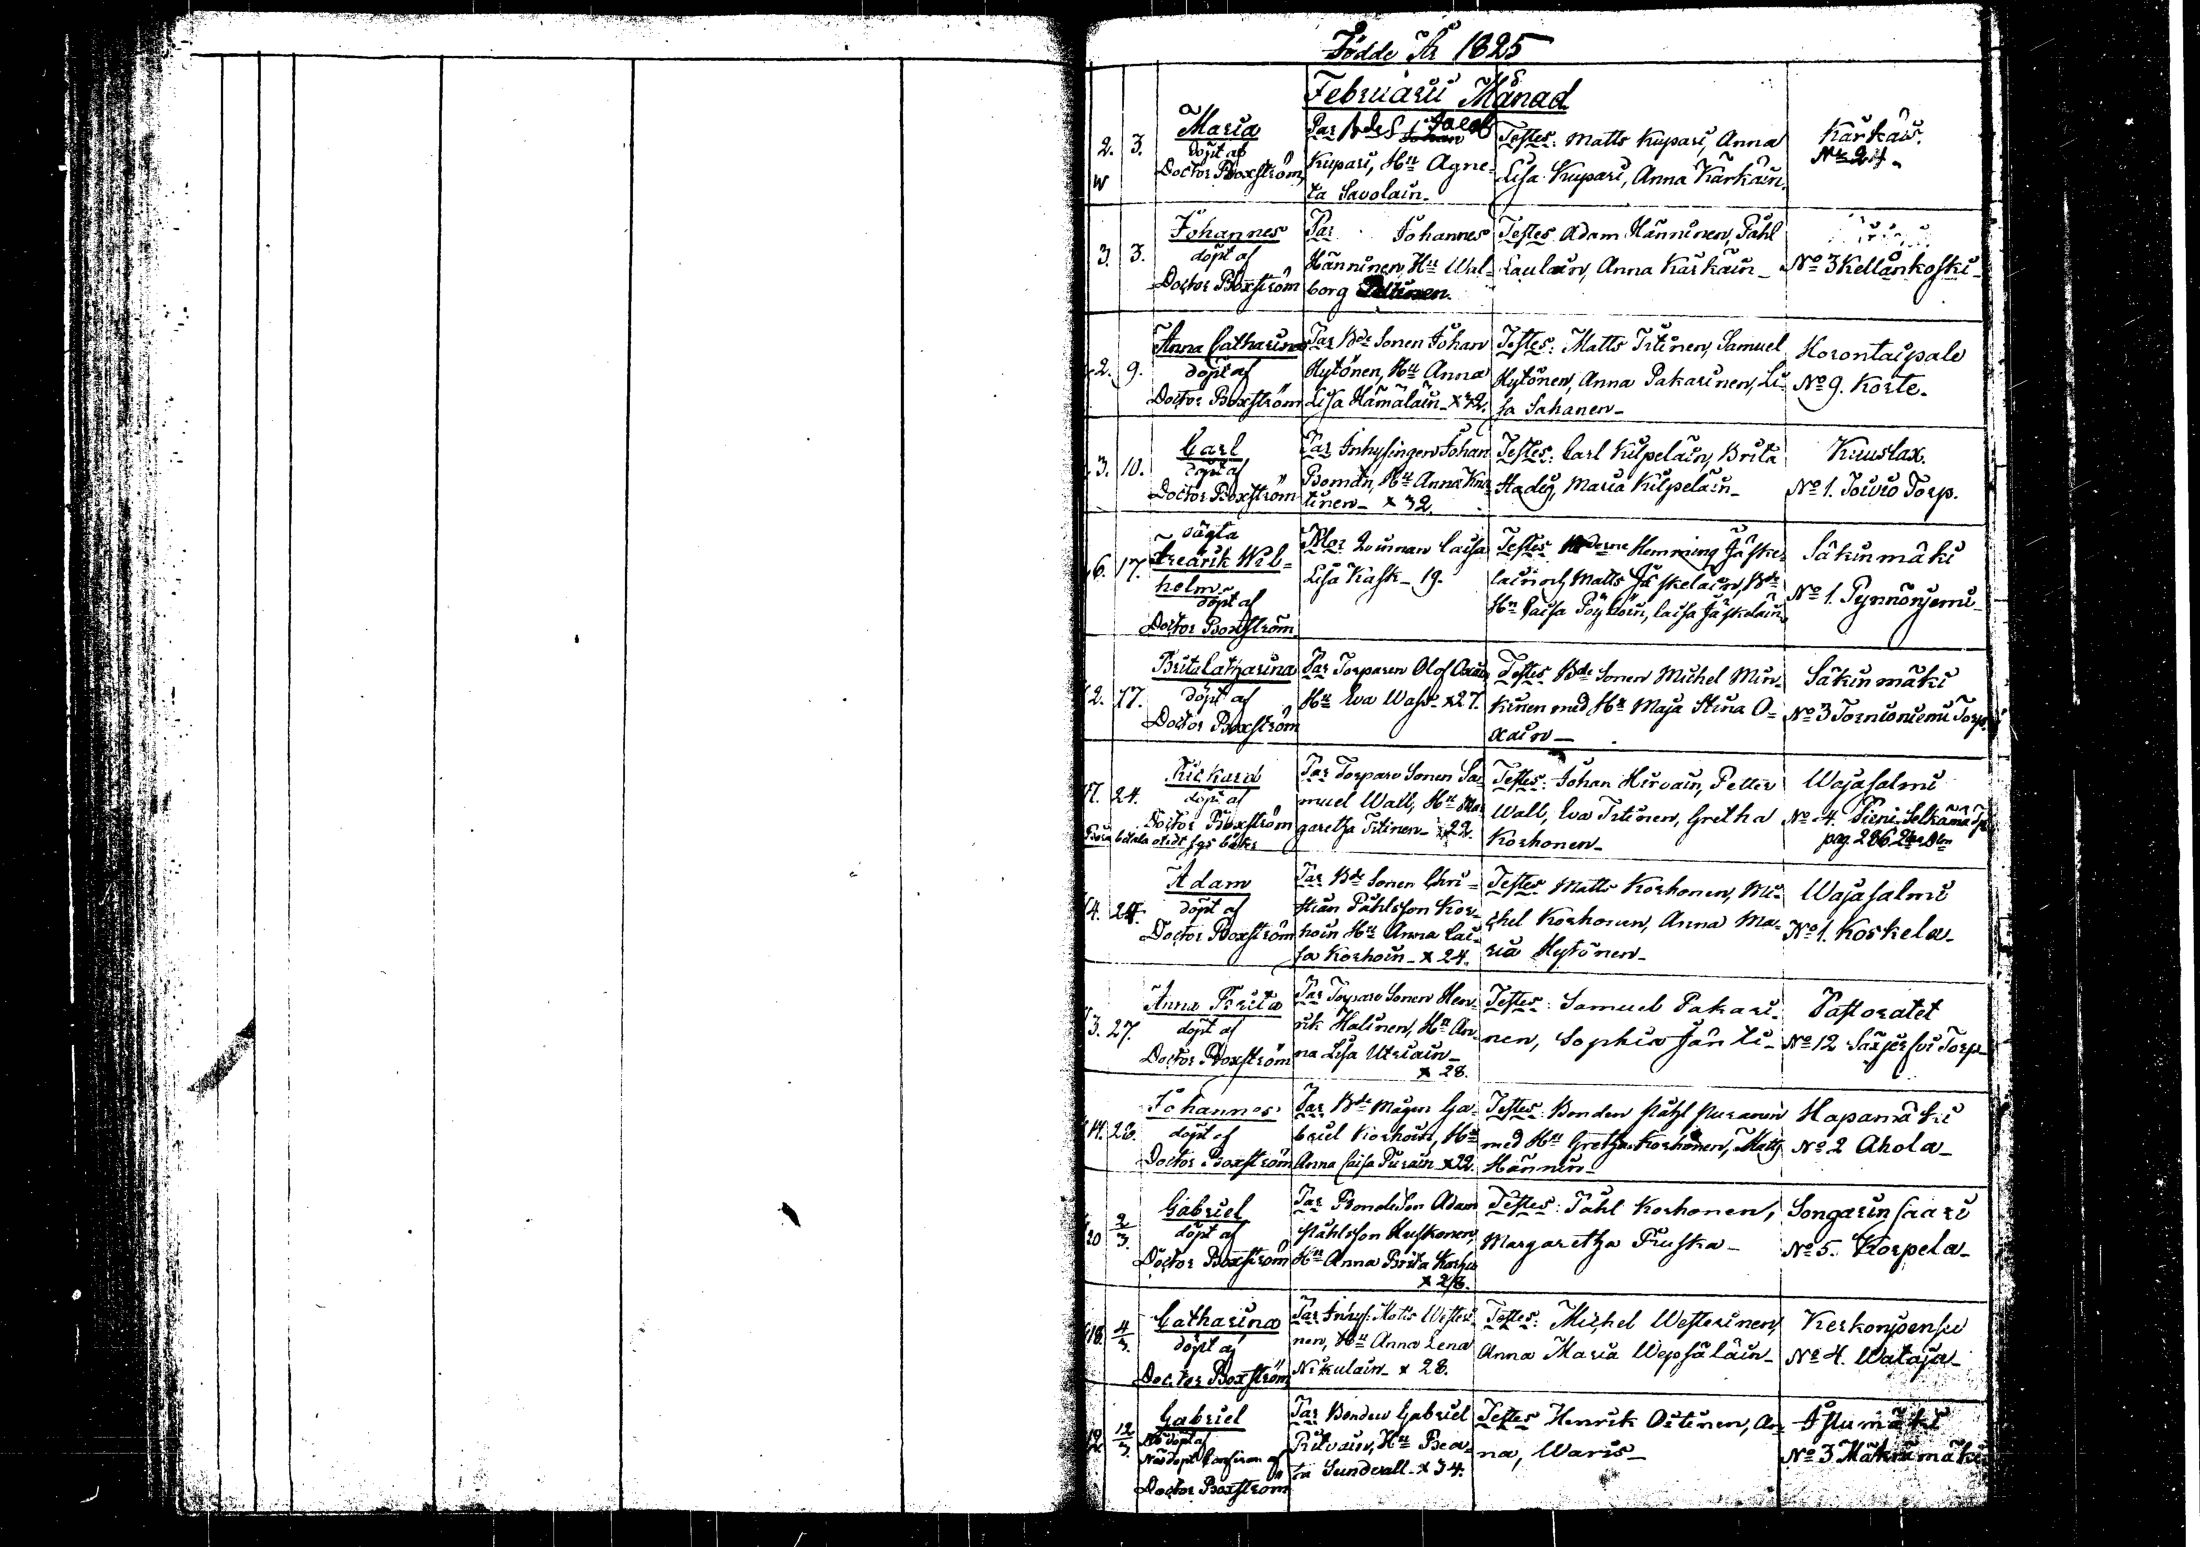 Födde År 1825
Februarii Månad
2. 3. Maria
döpt af
Doctor Boxström
Par BdeS Jacob
Johan
Kupari, Hu Agne-
ta Savolain_
Testes: Matts Kupari, Anna
Lisa Kupari, Anna Kärkäin
Kärkäis.
No 24_
3. 3. Johannes
döpt af
Doctor Boxström
Par Johannes
Hänninen, Hu Wal-
borg
Testes Adam Hänninen, Påhl
Laulain, Anna Kärkäin_
No 3 Kellänkoski_
2. 9. Anna Catharina
döpt af
Doctor Boxström
Par Bde Sonen Johan
Hytönen, Hu Anna
Lisa Hämäläin_ x 32.
Testes: Matts Titinen, Samuel
Hytönen, Anna Pakarinen, Li-
sa Sahanen_
Horontaipale
No 9. Korte_
3. 10. Carl
döpt af
Doctor Boxström
Par Inhysingen Johan
Boman, Hu Anna
tinen_ x 32.
Testes: Carl Kilpeläin, Brita
Hadig Maria Kilpeläin_
Kuuslax.
No 1. Toivio Torp.
6. 17. oägta
Fredrik Wil-
helm
döpt af
Doctor Boxström
Mor Qvinnan Caisa
Lisa Kask_ 19.
Testes Hemming Jäske-
lain och Matts Jäskelain, Bde
Hn Caisa Pöyhöin, Caisa Jäskeläin
Säkinmäki
No 1. Pynnönjemi_
2. 17. Brita Catharina
döpt af
Doctor Boxström
Par Torparen Olof Oxain
Hu Eva Wass_ x 27.
Testes Bde Sonen Michel Min-
kinen med Hu Maja Stina O-
xain_
Säkinmäki
No 3 Tornioniemi Torp
17. 24. Rickard
döpt af
Doctor Boxström
Par Torpare Sonen Sa-
muel Wall, Hu Mar-
garetha Titinen_ 22.
Testes: Johan Hirvain, Petter
Wall, Eva Titinen, Gretha
Korhonen_
Wajasalmi
No 4. Pieni Selkämä Tp
pag. 286
4. 24. Adam
döpt af
Doctor Boxström
Par Bde Sonen Chri-
stian Påhlsson Kor-
hoin Hu Anna Cai-
sa Korhoin_ x 24.
Testes Matts Korhonen, Mi-
chel Korhonen, Anna Ma-
ria Hytönen_
Wajasalmi
No 1. Koskela_
3. 27. Anna Brita
döpt af
Doctor Boxström
Par Torpare Sonen Hen-
rik Halinen, Hu An-
na Lisa Utriain_
x 28.
Testes: Samuel Pakari-
nen, Sophia Jänti_
Pastoratet
No 12 Särjersvi Torp_
14. 28. Johannes
döpt af
Doctor Boxström
Par Bde Mågen Ga-
briel Korhoin, Hu
Anna Caisa Purain_ x 32.
Testes: Bonden Påhl Puranen
med Hu Gretha Korhonen, Matts
Hännin_
Hapamäki
No 2 Ahola_
20 2/3. Gabriel
döpt af
Doctor Boxström
Par BondeSon Adam
Påhlsson Huskonen,
Hu Anna Brita
x 28.
Testes: Påhl Korhonen,
Margaretha Ruska_
Songarinsaari
No 5. Korpela_
18. 4/3. Catharina
döpt af
Doctor Boxström
Par Inhys. Matts Westeri-
nen, Hu Anna Lena
Nikulain_ x 28.
Testes: Michel Westerinen,
Anna Maria Wepsäläin_
Kerkonjoensu
No 4. Wataja_
12. 12/3. Gabriel
Nöddöpt af
Nöddopet Confirm. af
Doctor Boxström
Par Bonden Gabriel
Ritvain, Hu Bea-
ta Sundvall_ x 34.
Testes Henrik Oitinen, An-
na, Waris_
Istumäki
No 3 Mäkrämäki